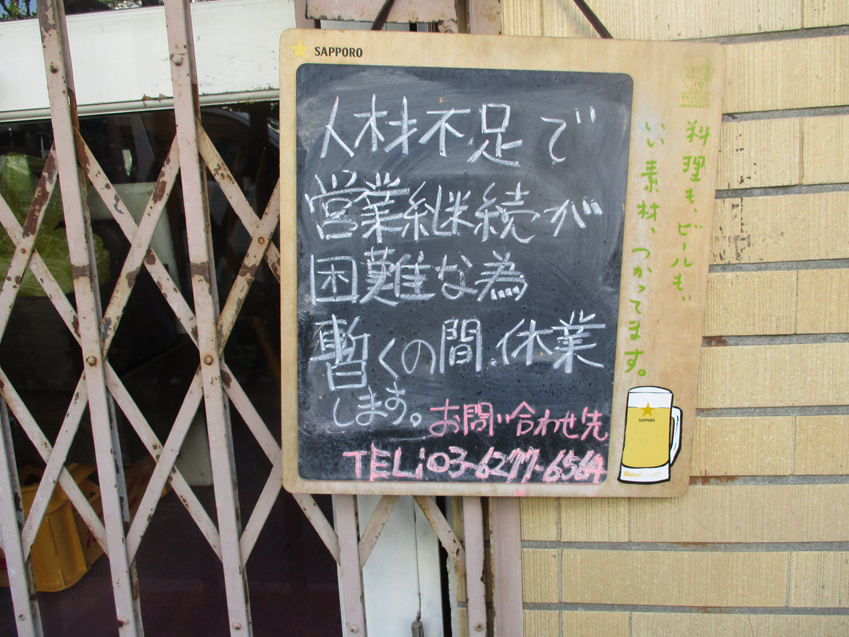 SAPPORO
人材不足で
営業継続が
困難な為
暫くの間、休業
します。お問い合わせ先
TEL:03-6277-6564
料理も、ビールもい
い素材、つかってます。
SAPPORO